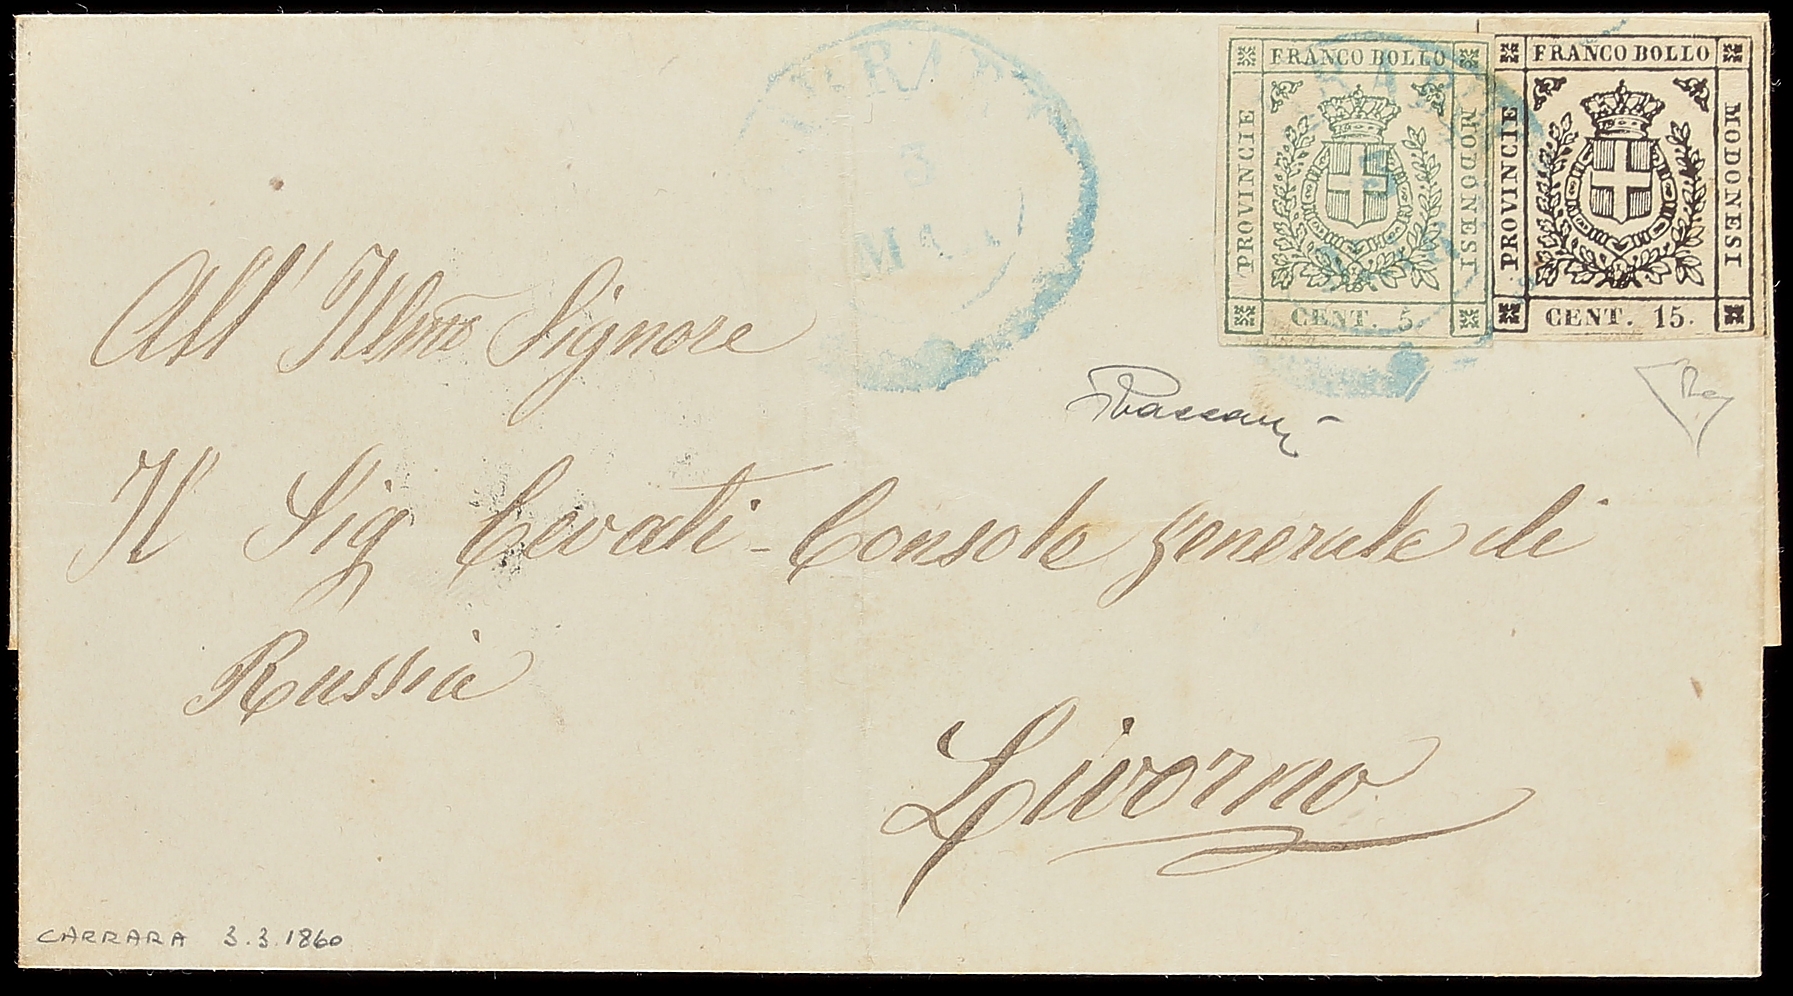 FRANCO BOLLO
PROVINCIE
MODONESI
CENT. 5.
FRANCO BOLLO
PROVINCIE
MODONESI
CENT. 15.
3
MAR
All' Illmo Signore
Il Sig Cevati - Console generale di
Russia
Livorno
CARRARA 3.3.1860